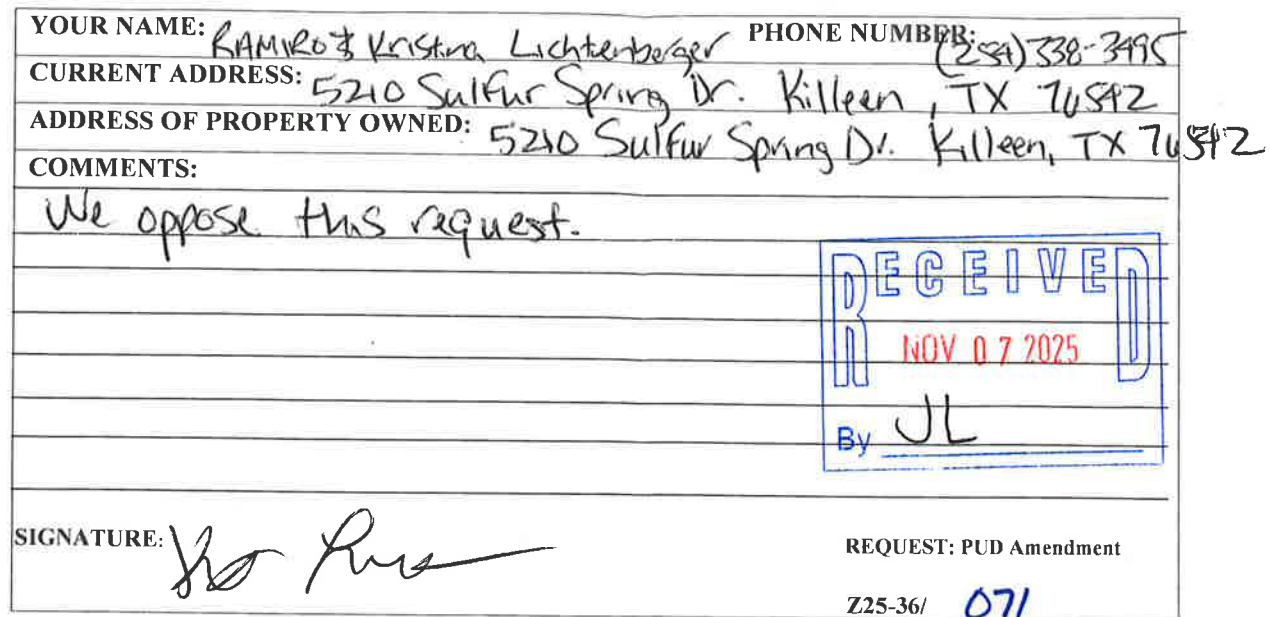 YOUR NAME: RAMIRO & Kristina Lichtenberger PHONE NUMBER: (254) 338-3495
CURRENT ADDRESS: 5210 Sulfur Spring Dr. Killeen, TX 76542
ADDRESS OF PROPERTY OWNED: 5210 Sulfur Spring Dr. Killeen, TX 76542
COMMENTS:
We oppose this request.
RECEIVED
NOV 07 2025
By JL
SIGNATURE:
REQUEST: PUD Amendment
Z25-36/ 071